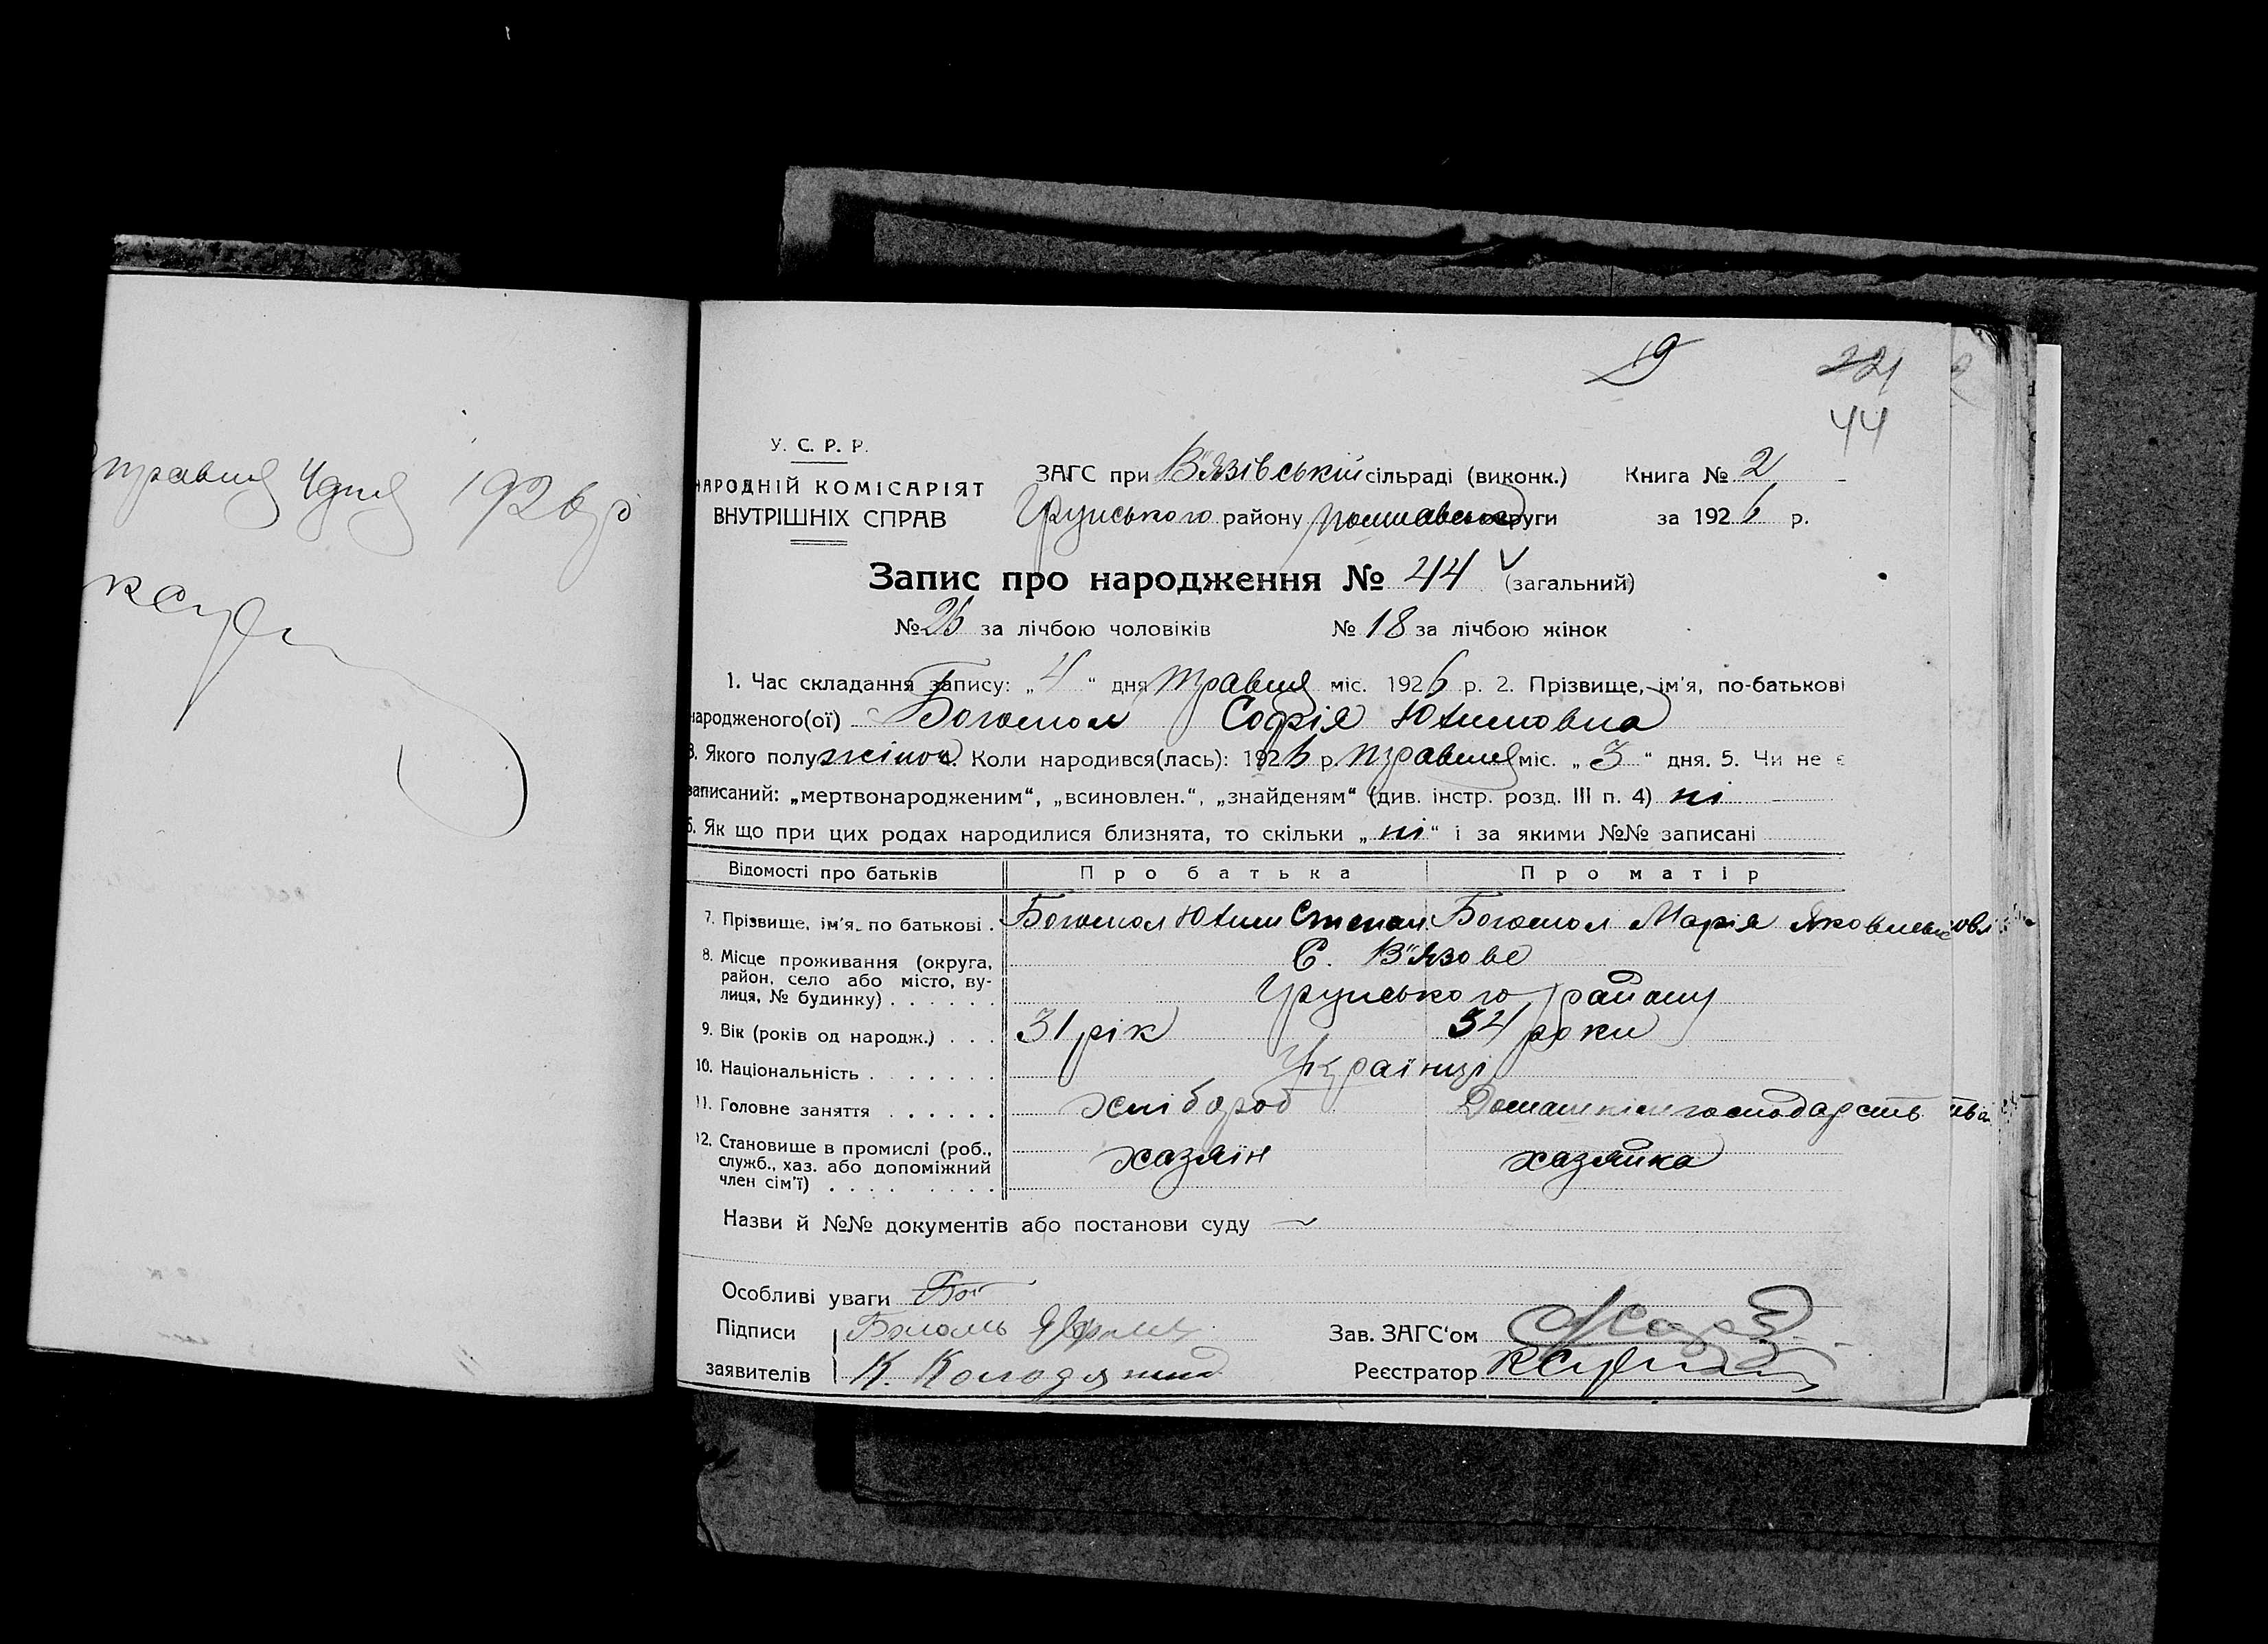 травня 4 дня 1926 р
19
221
44
У. С. Р. Р.
НАРОДНІЙ КОМІСАРІЯТ
ВНУТРІШНІХ СПРАВ
ЗАГС при В'язівській сільраді (виконк.) Книга № 2
Грунського району округи за 1926 р.
Запис про народження № 44 (загальний)
№ 26 за лічбою чоловіків № 18 за лічбою жінок
1. Час складання запису: „4“ дня травня міс. 1926 р. 2. Прізвище, ім'я, по-батькові
народженого(ої) Богомол Софія Юхимовна
3. Якого полу жіноч. 4. Коли народився(лась): 1926 р. травня міс. „3“ дня. 5. Чи не є
записаний: „мертвонародженим“, „всиновлен.“, „знайденям“ (див. інстр. розд. III п. 4) ні
6. Як що при цих родах народилися близнята, то скільки „ні“ і за якими №№ записані
Відомості про батьків Про батька Про матір
7. Прізвище, ім'я, по батькові . Богомол Юхим Степан Богомол Марія Яковлевна
8. Місце проживання (округа, район, село або місто, вулиця, № будинку) . . . . . . С. В'язове
Грунського району
9. Вік (років од народж.) . . . 31 рік 34 роки
10. Національність . . . . . . . Українці
11. Головне заняття . . . . . . хлібороб Домашнім господарств
12. Становище в промислі (роб., служб., хаз. або допоміжний член сім'ї) . . . . . . . . . хазяїн хазяйка
Назви й №№ документів або постанови суду —
Особливі уваги Бог
Підписи Зав. ЗАГС'ом
заявителів К. Колодяжний Реєстратор